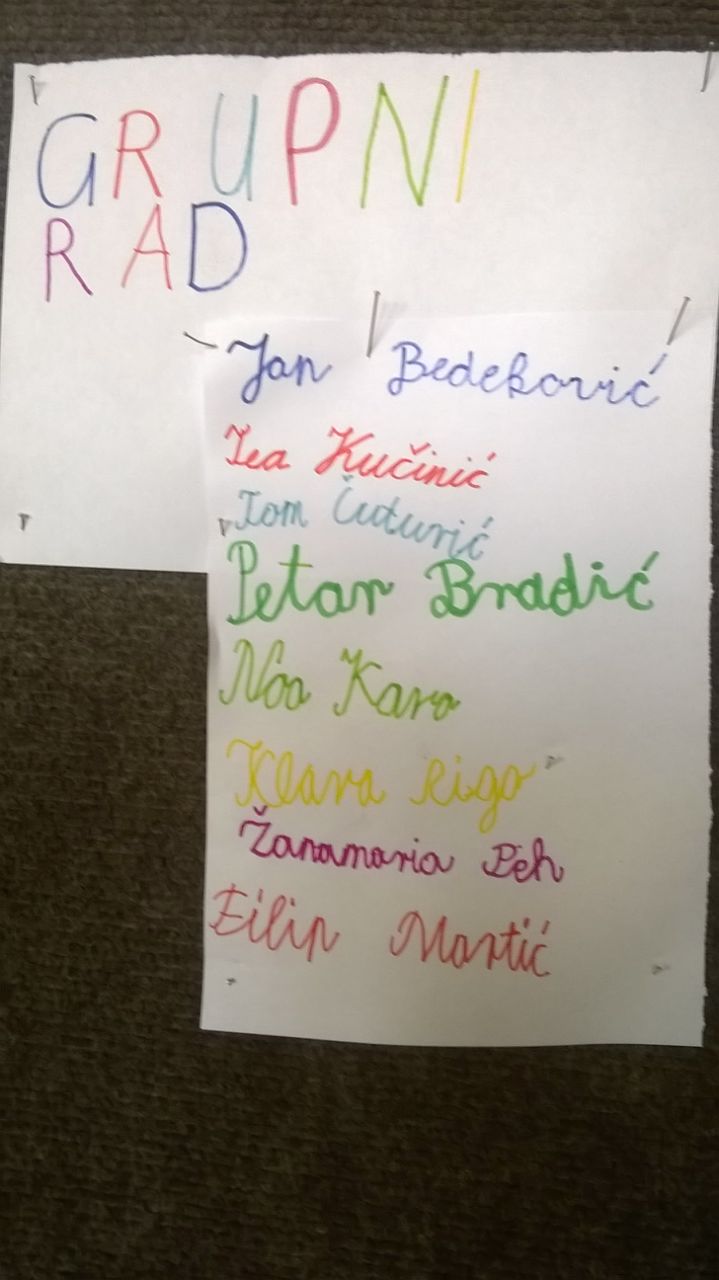 GRUPNI
RAD
Jan Bedeković
Tea Kučinić
Tom Čuturić
Petar Bradić
Noa Karo
Klara Rigo
Žanamaria Peh
Filip Martić